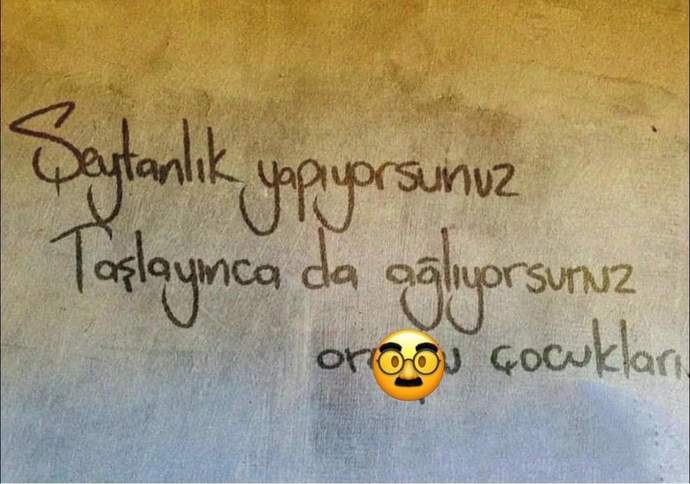 Şeytanlık yapıyorsunuz
Taşlayınca da ağlıyorsunuz
çocukları